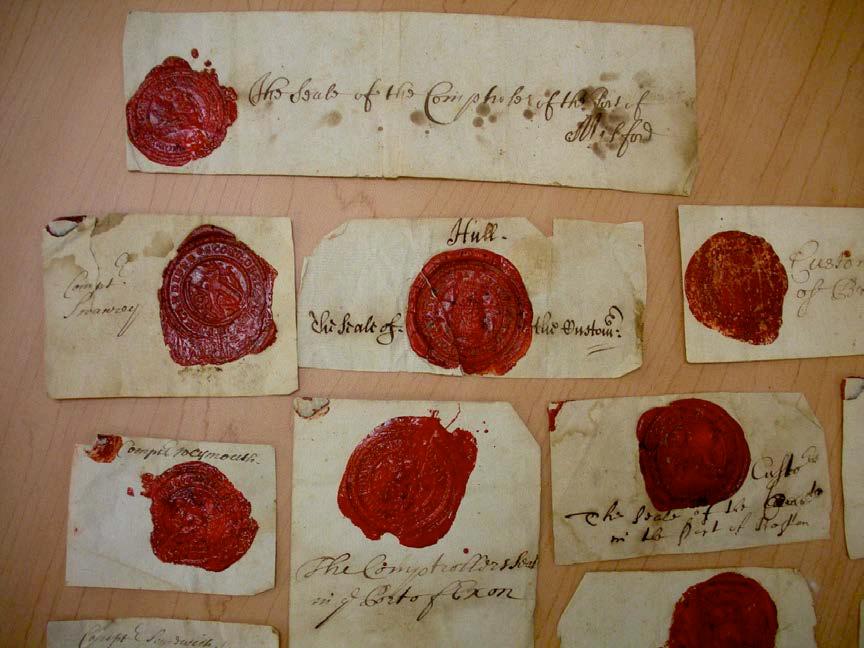 The Seale of the Comptroler of the Port of
Milford
Compt.r
Swanzey
Hull.
The Seale of the Custom:
Custom
of
Compt.r Weymouth.
The Comptrollers Seal
in ye Port of Exon
Custo
The Seale of the
in the Port of
Compt.r Sandwich